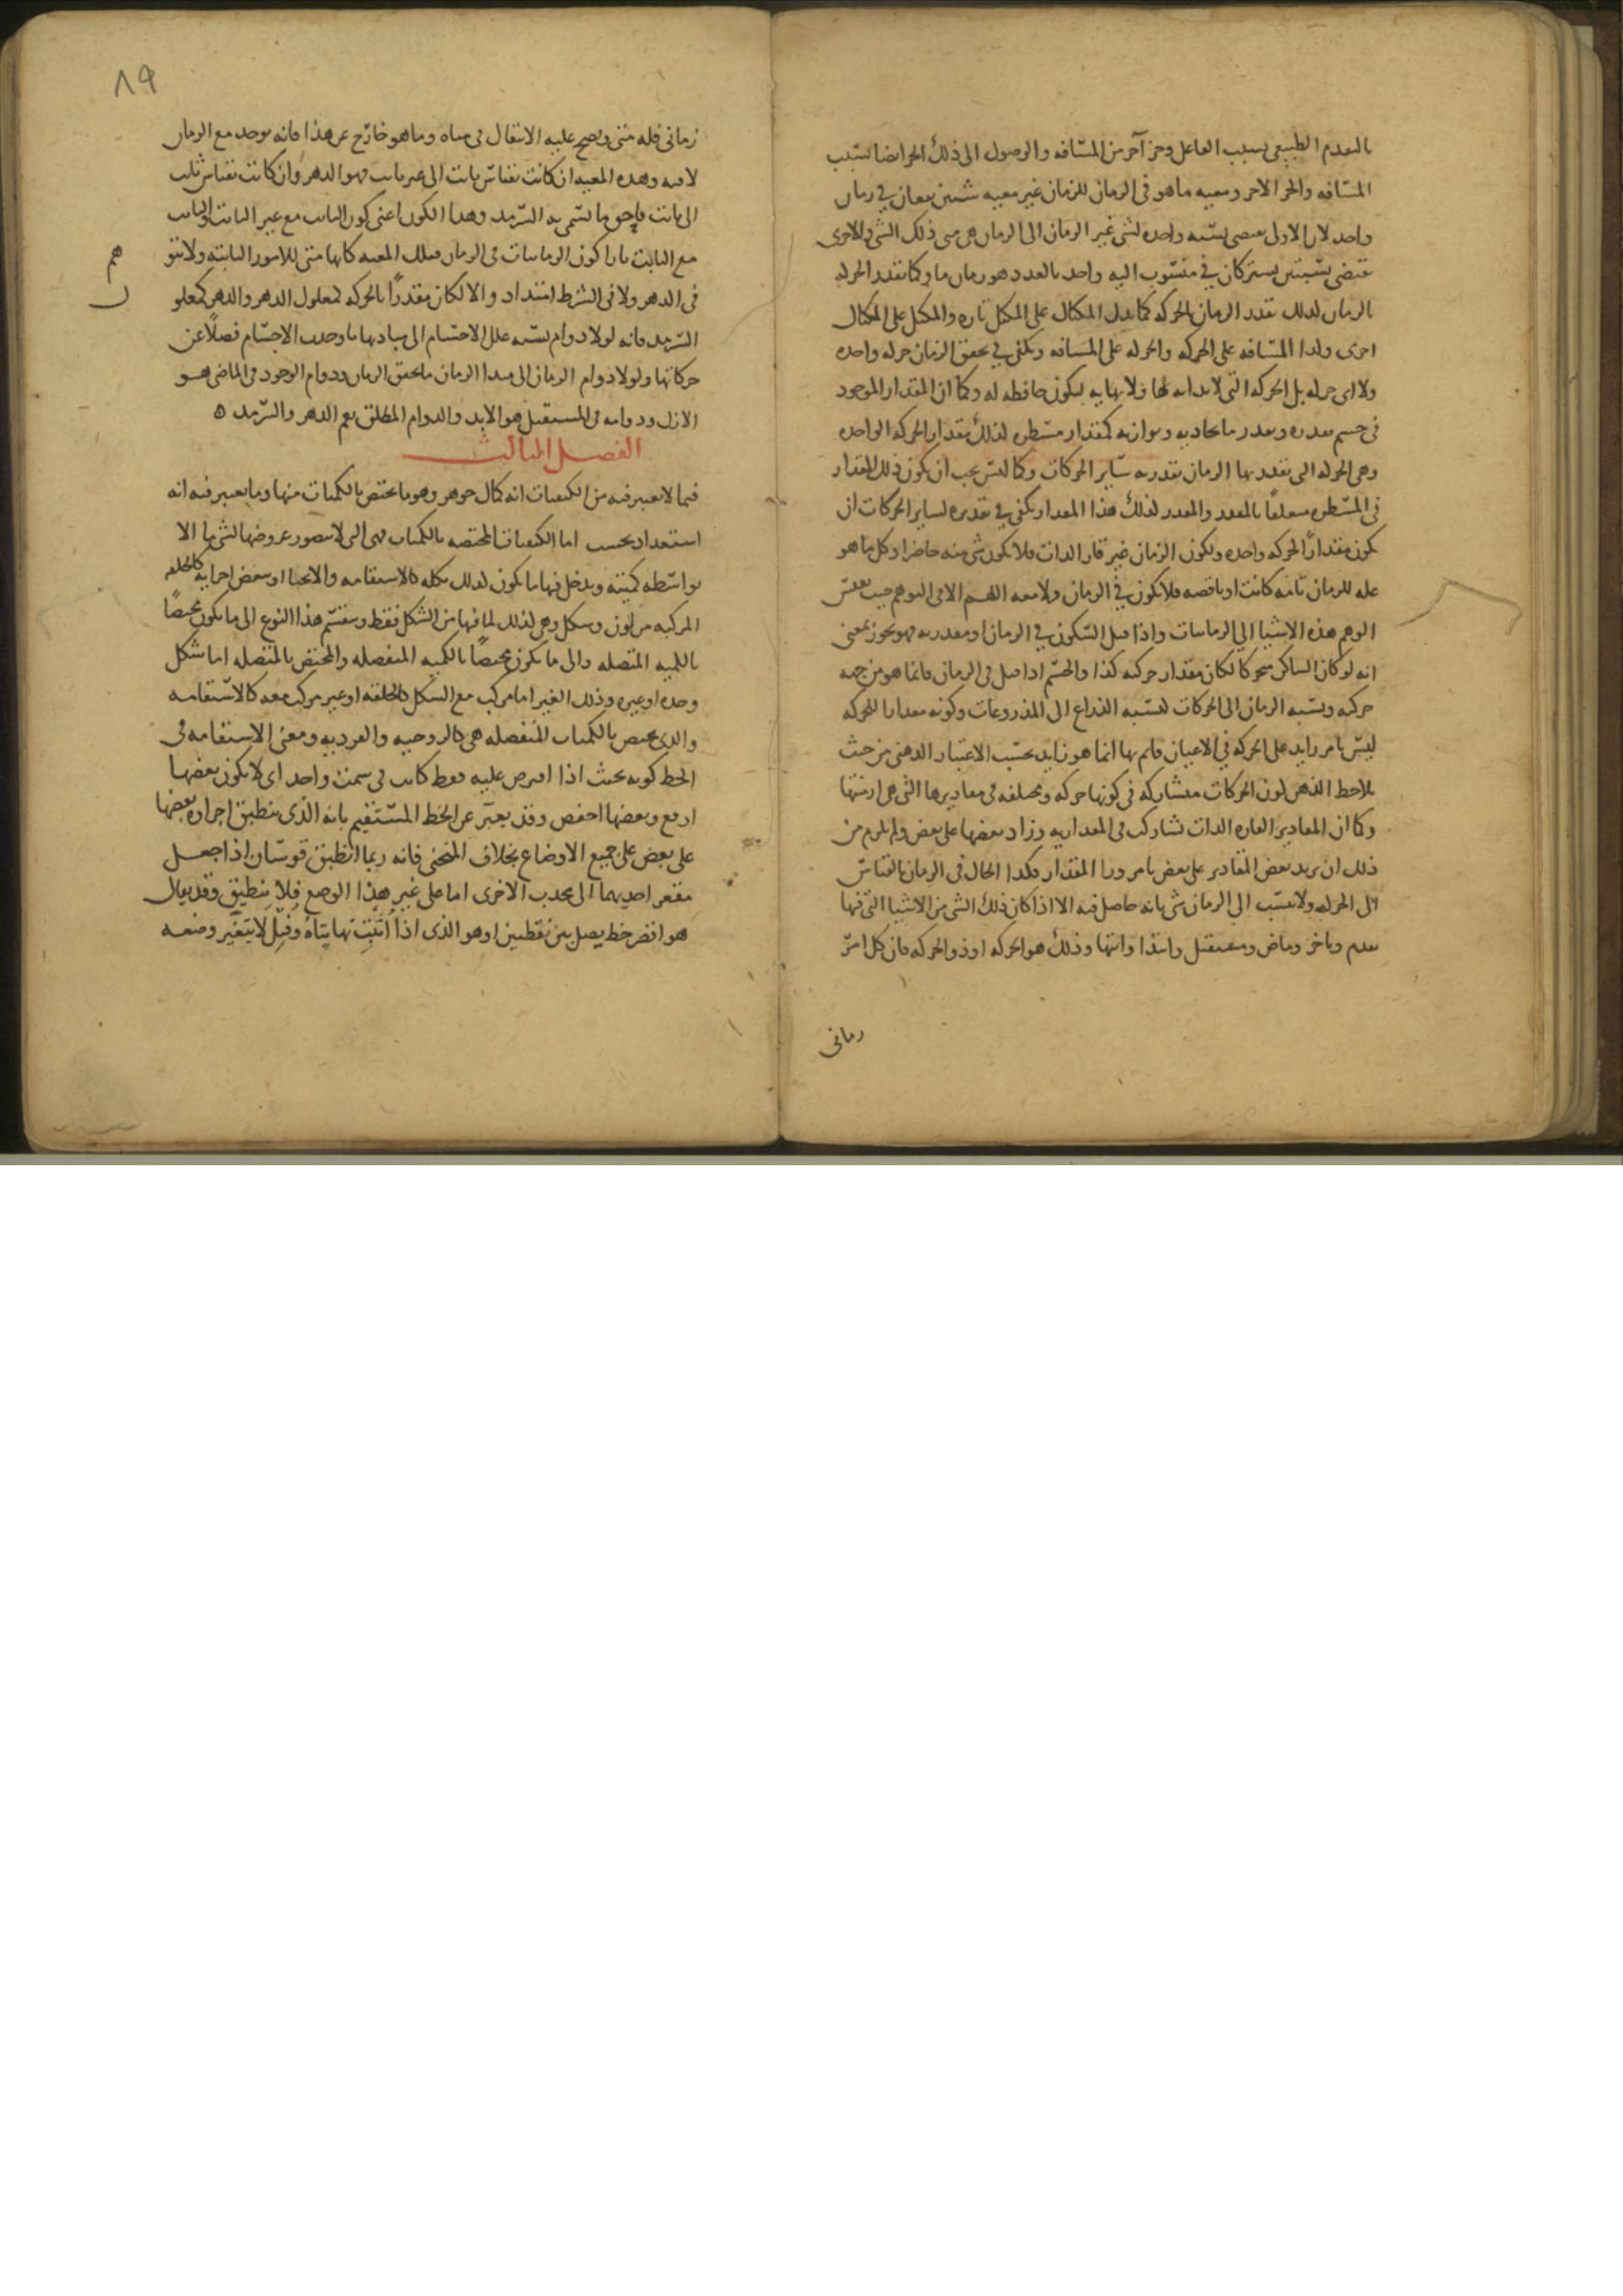 بالتقدم الطبيعي بسبب الفاعل وجز آخر من المسافه والوصول الى ذلك الجز ايضا بسبب
المسافه والجز الاخر ومعيه ما هو في الزمان للزمان غير معيه شيئين يقعان في زمان
واحد لان الاولى تقتضي نسبه واحده لشي غير الزمان الى الزمان هي متى ذلك الشي والاخرى
تقتضي نسبتين يشتركان في منسوب اليه واحد بالعدد هو زمان ما وكما تقدر الحركه
بالزمان لذلك تقدر الزمان بالحركه كما يدل المكيال على المكيل تاره والمكيل على المكيال
اخرى ولذا المسافه على الحركه والحركه على المسافه ويكفي في تحقق الزمان حركه واحده
ولا اى حركه بل الحركه التى لا بدايه لها ولا نهايه ليكون حافظه له وكما ان المقدار الموجود
في جسم يقدره ويقدر ما يحاذيه ويوازيه كمقدار مسطره لذلك مقدار الحركه الواحده
وهي الحركه التى يتقدر بها الزمان تقدر به ساير الحركات وكما ليس يجب ان يكون ذلك المقدار
في المسطره متعلقا بالمقدر والمقدر لذلك هذا المقدار يكفي في تقديره لساير الحركات ان
يكون مقدارا لحركه واحده ولكون الزمان غير قار الذات فلا يكون شي منه حاضرا وكل ما هو
عله للزمان تامه كانت او ناقصه فلا يكون في الزمان ولا معه اللهم الا في التوهم حيث يقيس
الوهم هذه الاشيا الى الزمانيات واذا قيل السكون في الزمان او مقدر به فهو تجوز بمعنى
انه لو كان الساكن متحركا لكان مقدار حركته كذا والجسم اذا قيل في الزمان فانما هو من جهه
حركته ونسبه الزمان الى الحركات كنسبه الذراع الى المذروعات وكونه مقدارا للحركه
ليس بامر زايد على الحركه في الاعيان قايم بها انما هو زايد بحسب الاعتبار الذهني من حيث
يلاحظ الذهن لون الحركات متشاركه في كونها حركه ومختلفه في مقاديرها التي هي ازمنتها
وكما ان المقادير القاره الذات تشاركت في المقداريه وزاد بعضها على بعض ولم يلزم من
ذلك ان يزيد بعض المقادير على بعض بامر ورا المقدار فكذا الحال في الزمان بالقياس
الى الحركه ولا ينسب الى الزمان شي بانه حاصل فيه الا اذا كان ذلك الشي من الاشيا التي فيها
تقدم وتاخر وماض ومستقبل وابتدا وانتها وذلك هو الحركه او ذو الحركه فان كل امر
زماني
٨٩
زماني فله متى ويصح عليه الانتقال في متاه وما هو خارج عن هذا فانه يوجد مع الزمان
لا فيه وهذه المعيه ان كانت بقياس ثابت الى غير ثابت فهو الدهر وان كانت بقياس ثابت
الى ثابت فاحق ما تسمى به السرمد وهذا الكون اعني كون الثابت مع غير الثابت والثابت
مع الثابت بازا كون الزمانيات في الزمان فتلك المعيه كانها متى للامور الثابته ولا يتو
هم
في الدهر ولا في السرمد امتداد والا لكان مقدرا بالحركه كمعلول الدهر والدهر كمعلو
ل
السرمد فانه لولا دوام نسبه علل الاجسام الى مباديها ما وجدت الاجسام فضلا عن
حركاتها ولولا دوام الزمان الى مبدا الزمان ما تحقق الزمان ودوام الوجود في الماضي هو
الازل ودوامه في المستقبل هو الابد والدوام المطلق يعم الدهر والسرمد ه
الفصل الثالث
فيما لا يعتبر فيه من الكيفيات انه كمال جوهر وهو ما يختص بالكميات منها وما يعتبر فيه انه
استعداد بحسب اما الكيفيات المختصه بالكميات فهي التي لا يتصور عروضها لشي ما الا
بواسطه كميته ويدخل فيها ما يكون لذلك بكله كالاستقامه والانحنا او ببعض اجزايه كالخلقه
المركبه من لون وشكل وهي لذلك لما فيها من الشكل فقط وينقسم هذا النوع الى ما يكون مختصا
بالكميه المتصله والى ما يكون مختصا بالكميه المنفصله والمختص بالمتصله اما شكل
وحده او غيره وذلك الغير اما مركب مع الشكل كالخلقه او غير مركب معه كالاستقامه
والذي يختص بالكميات المنفصله هي كالزوجيه والفرديه ومعنى الاستقامه في
الخط كونه بحيث اذا افترض عليه نقط كانت في سمت واحد اي لا يكون بعضها
ارفع وبعضها اخفض وقد يعبر عن الخط المستقيم بانه الذي ينطبق اجزاوه بعضها
على بعض على جميع الاوضاع بخلاف المنحني فانه ربما انطبق قوسان اذا جعل
مقعر احديهما الى محدب الاخرى اما على غير هذا الوضع فلا ينطبق وقد يقال
هو اقصر خط يصل بين نقطتين او هو الذى اذا اثبتت نهايتاه وفتل لا يتغير وضعه